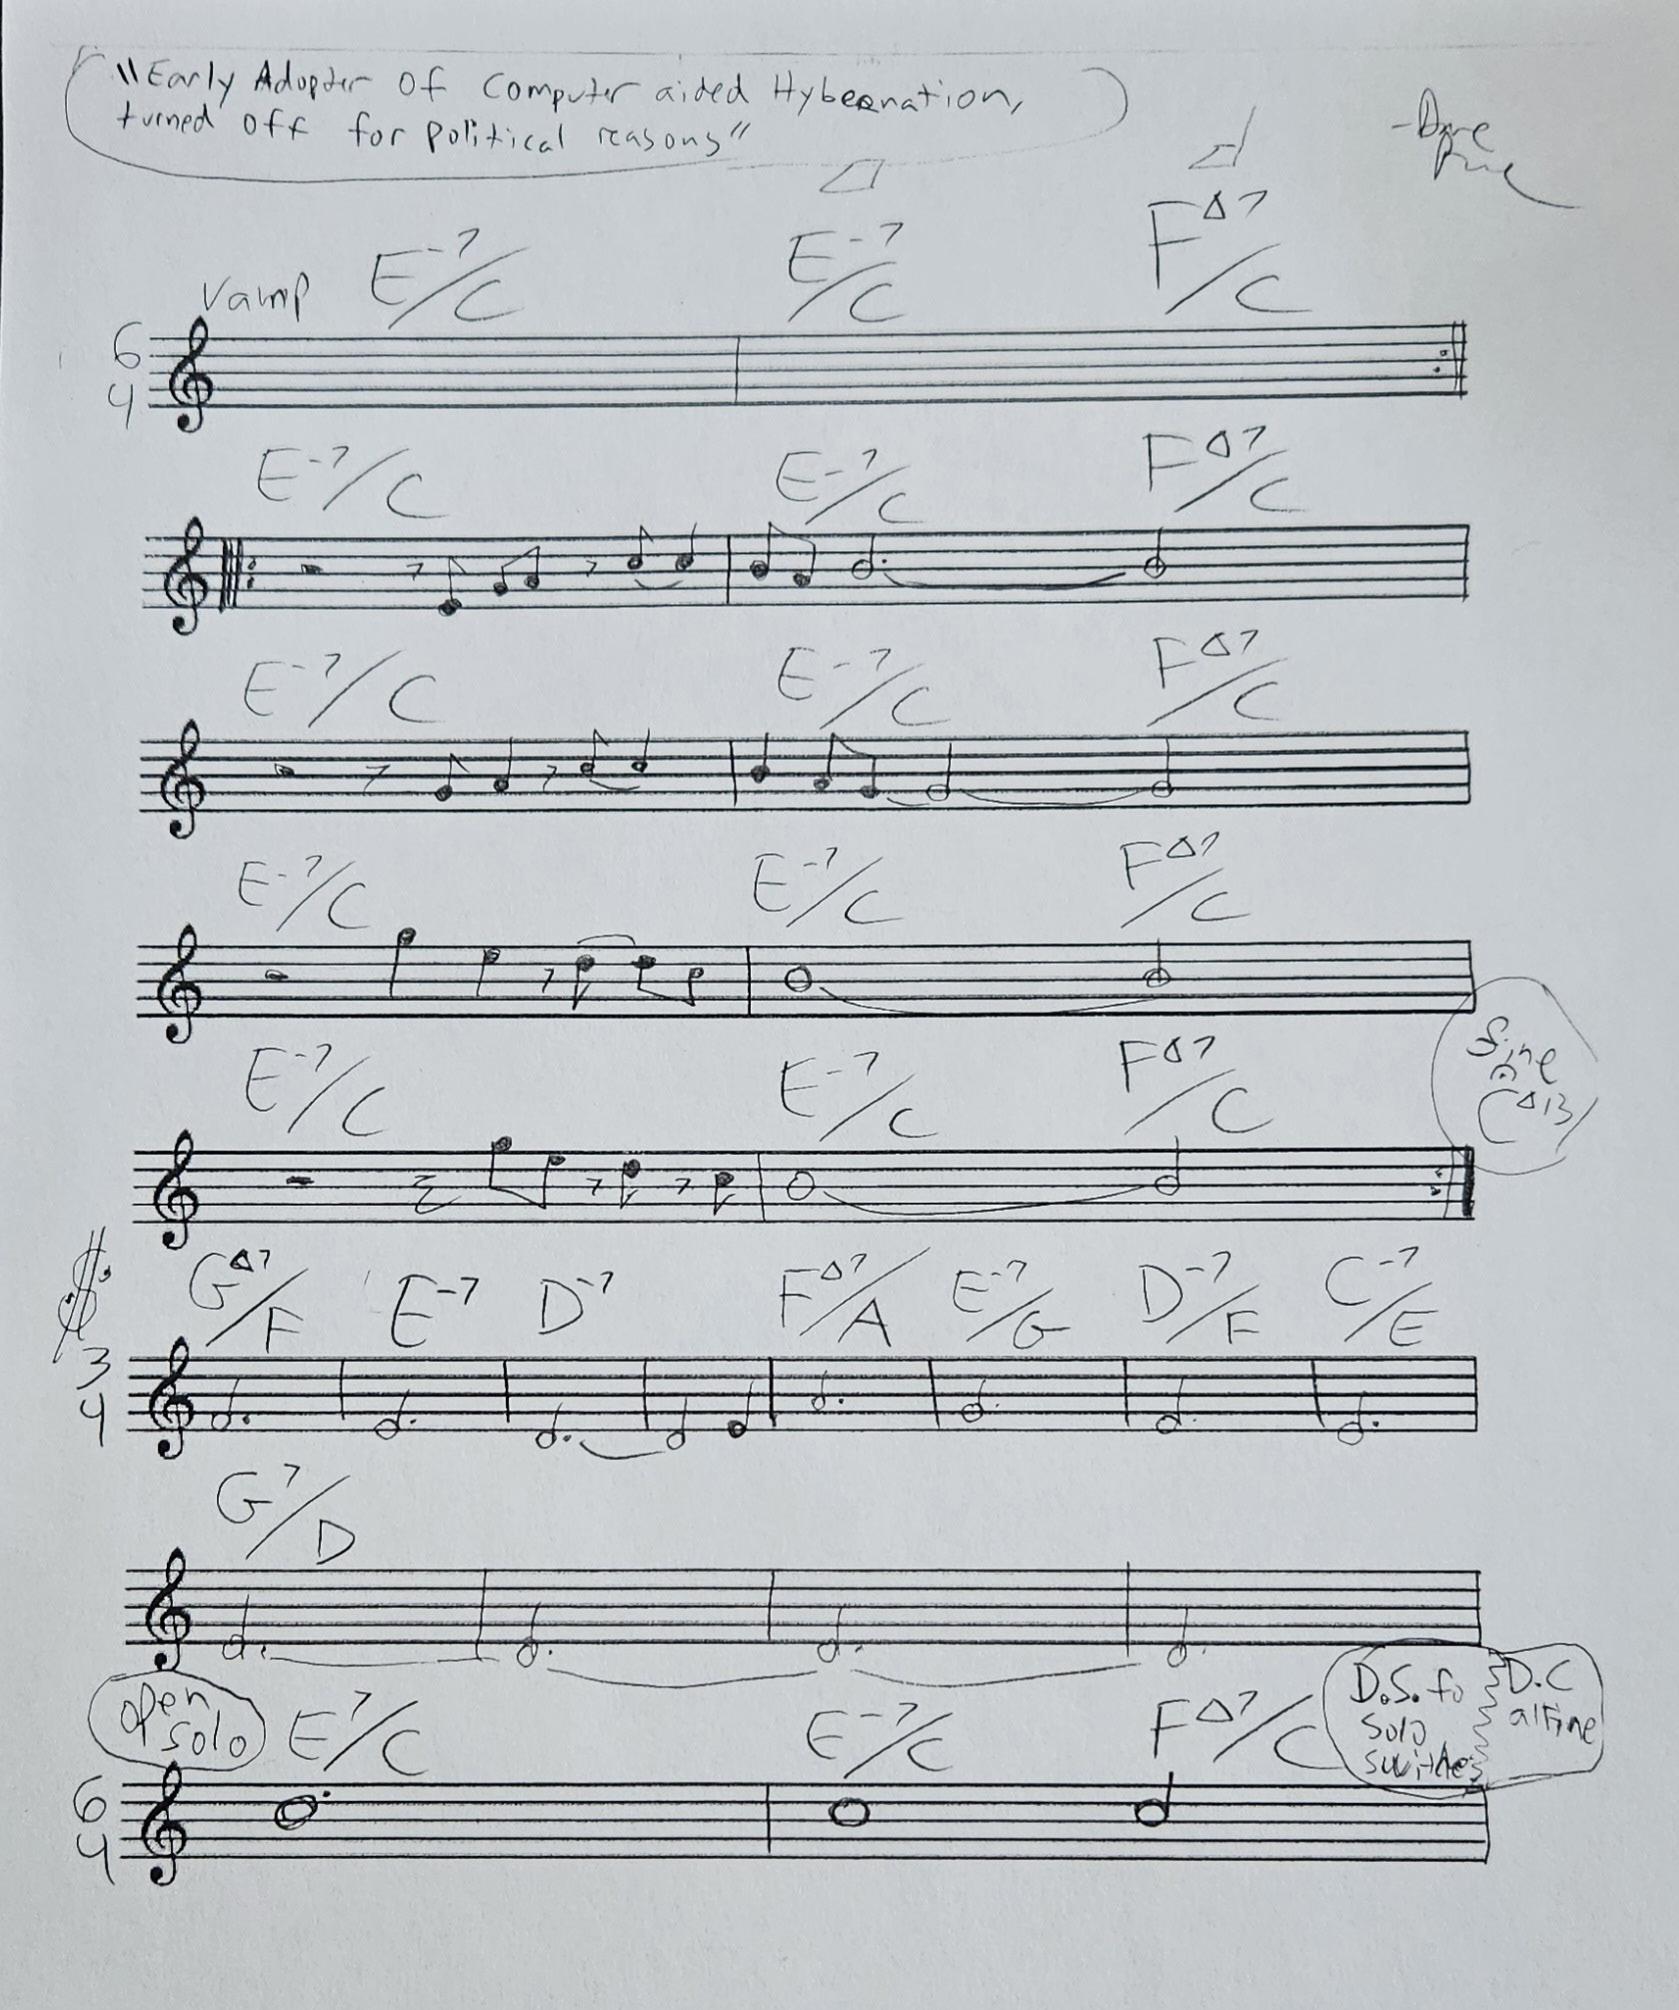 "Early Adopter Of Computer aided Hybernation,
turned off for political reasons"
Vamp E-7/C E-7/C FΔ7/C
6
4
E-7/C E-7/C FΔ7/C
E-7/C E-7/C FΔ7/C
E-7/C E-7/C FΔ7/C
E-7/C E-7/C FΔ7/C
fine
CΔ13
GΔ7/F E-7 D-7 FΔ7/A E-7/G D-7/F C-7/E
3
4
G7/D
open
solo
E7/C E-7/C FΔ7/C
D.S. fo
solo
switches
D.C
alfine
6
4